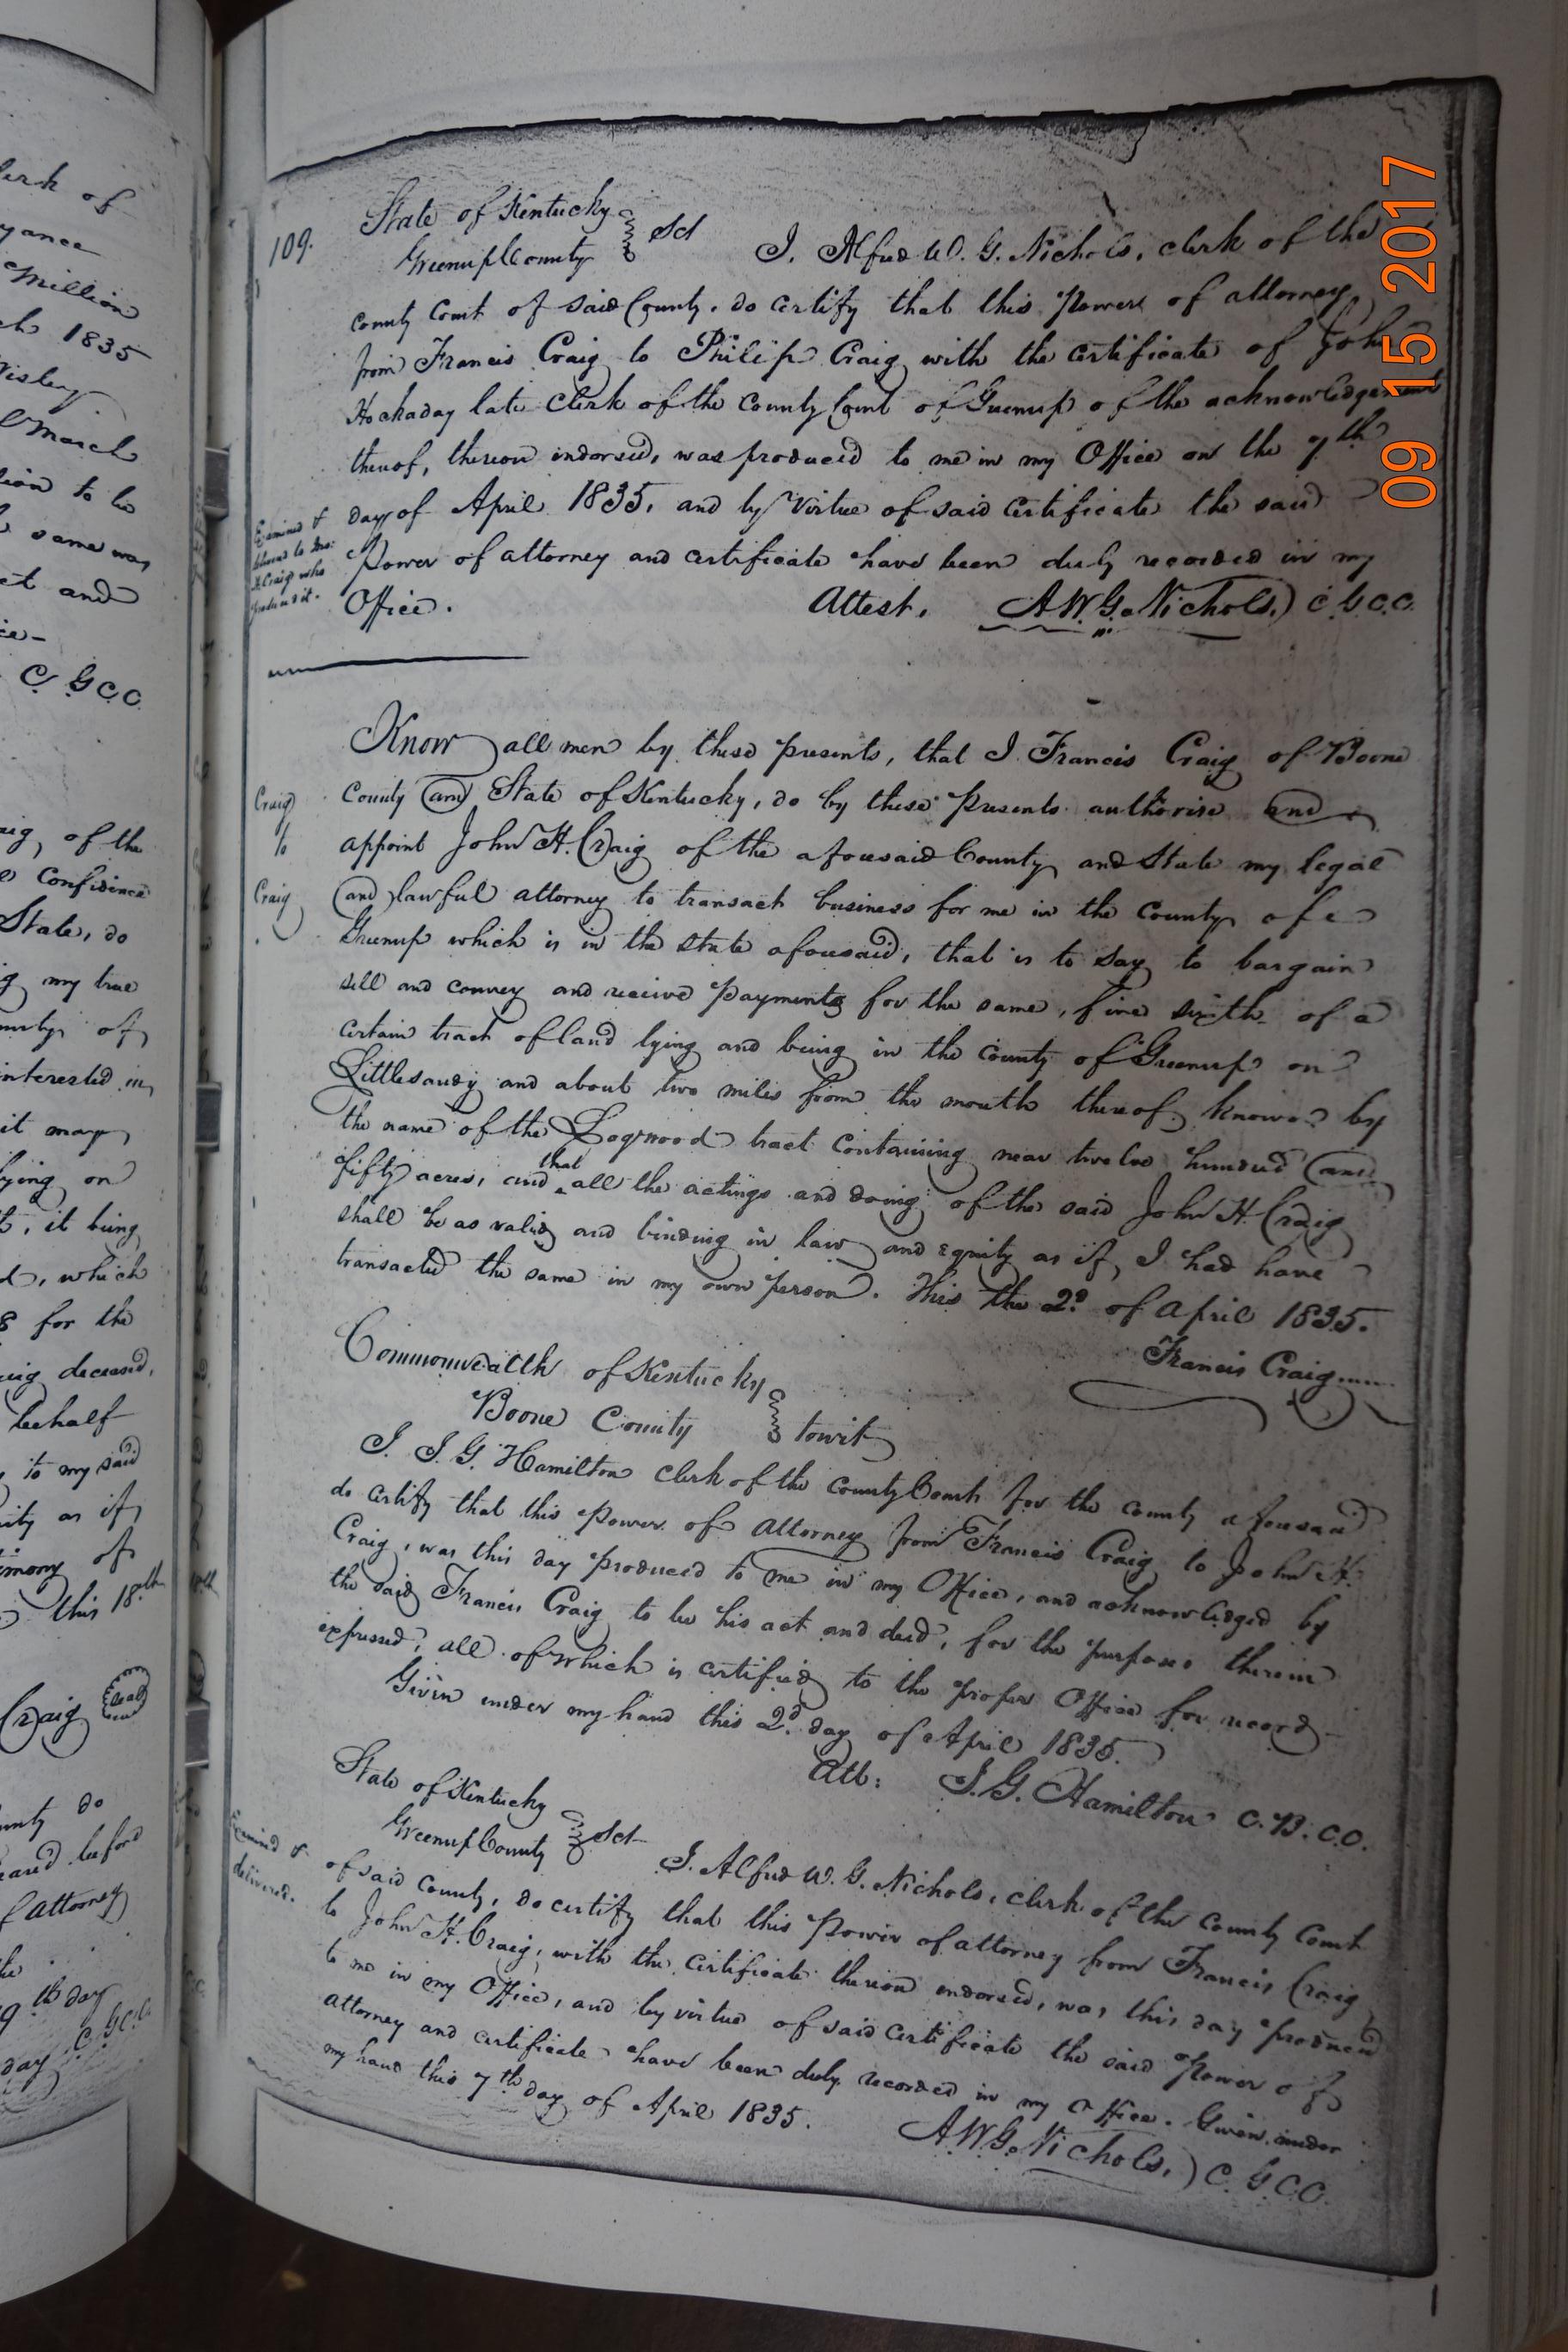 erk of
yance
Million
ch 1835
Nisley
March
tion to be
same was
et and
ce-
C. G.C.C.
aig, of the
Confidence
State, do
g my true
unty of
interested in
it may
lying on
it being
d, which
for the
aig deceased,
behalf
to my said
ity as if
imony of
this 18th
Craig Seal
unty do
eared before
f attorney
the
9th day
day C. G.C.C.
109.
State of Kentucky
Greenup County Sct
I. Alfred W. G. Nichols, clerk of the
county Court of said County, do certify that this Power of attorney
from Francis Craig to Philip Craig with the certificate of John
Hockaday late Clerk of the County Court of Greenup of the acknowledgement
thereof, thereon indorsed, was produced to me in my Office on the 7th
day of April 1835, and by Virtue of said certificate the said
Power of attorney and certificate have been duly recorded in my
Office. Attest. A.W.G. Nichols, C.G.C.C.
Examined &
delived to Jno:
H. Craig who
produced it.
Know all men by these presents, that I Francis Craig of Boone
County and State of Kentucky, do by these presents authorise and
appoint John H. Craig of the aforesaid County and State my legal
and lawful attorney to transact business for me in the County of
Greenup which is in the state aforesaid, that is to say to bargain
sell and convey and receive payments for the same, five sixth of a
certain tract of land lying and being in the County of Greenup on
Littlesandy and about two miles from the mouth thereof known by
the name of the Logwood tract containing near twelve hundred and
fifty acres, and that all the actings and doing of the said John H. Craig
shall be as valid and binding in law and equity as if I had have
transacted the same in my own person. This the 2d of April 1835.
Francis Craig
Craig
to
Craig
Commonwealth of Kentucky
Boone County towit
I. J. G. Hamilton clerk of the county Court for the county aforesaid
do certify that this Power of Attorney from Francis Craig to John H.
Craig, was this day produced to me in my Office, and acknowledged by
the said Francis Craig to be his act and deed, for the purposes therein
expressed, all of which is certified to the proper Office for record
Given under my hand this 2d day of April 1835.
Att: J. G. Hamilton C.B.C.C.
State of Kentucky
Greenup County Sct
I. Alfred W. G. Nichols, clerk of the County Court
of said County, do certify that this Power of attorney from Francis Craig
to John H. Craig, with the certificate thereon endorsed, was this day produced
to me in my Office, and by virtue of said certificate the said Power of
attorney and certificate have been duly recorded in my Office. Given under
my hand this 7th day of April 1835.
A.W.G. Nichols, C.G.C.C.
Examined &
delivered.
09 15 2017